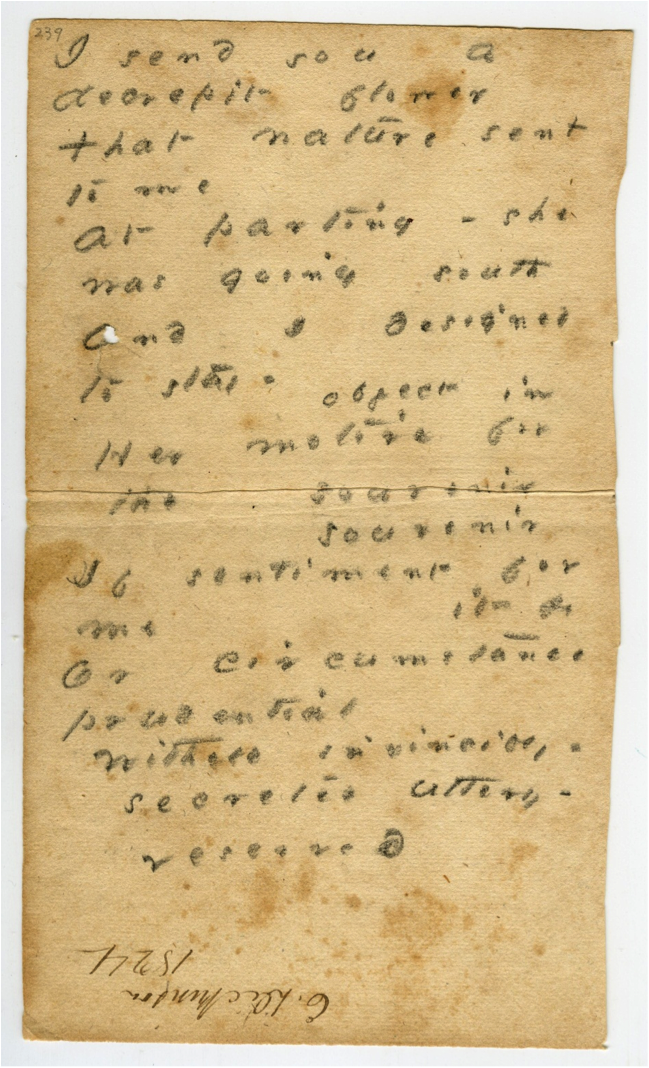 239
I send you a
decrepit flower
that nature sent
to me
At parting - she
was going south
And I designed
to stay - object in
Her motive for
the souvenir
souvenir
If sentiment for
me it be
Or circumstance
prudential
Withheld invincibly -
secretes utterly -
reserved
E. Dickinson